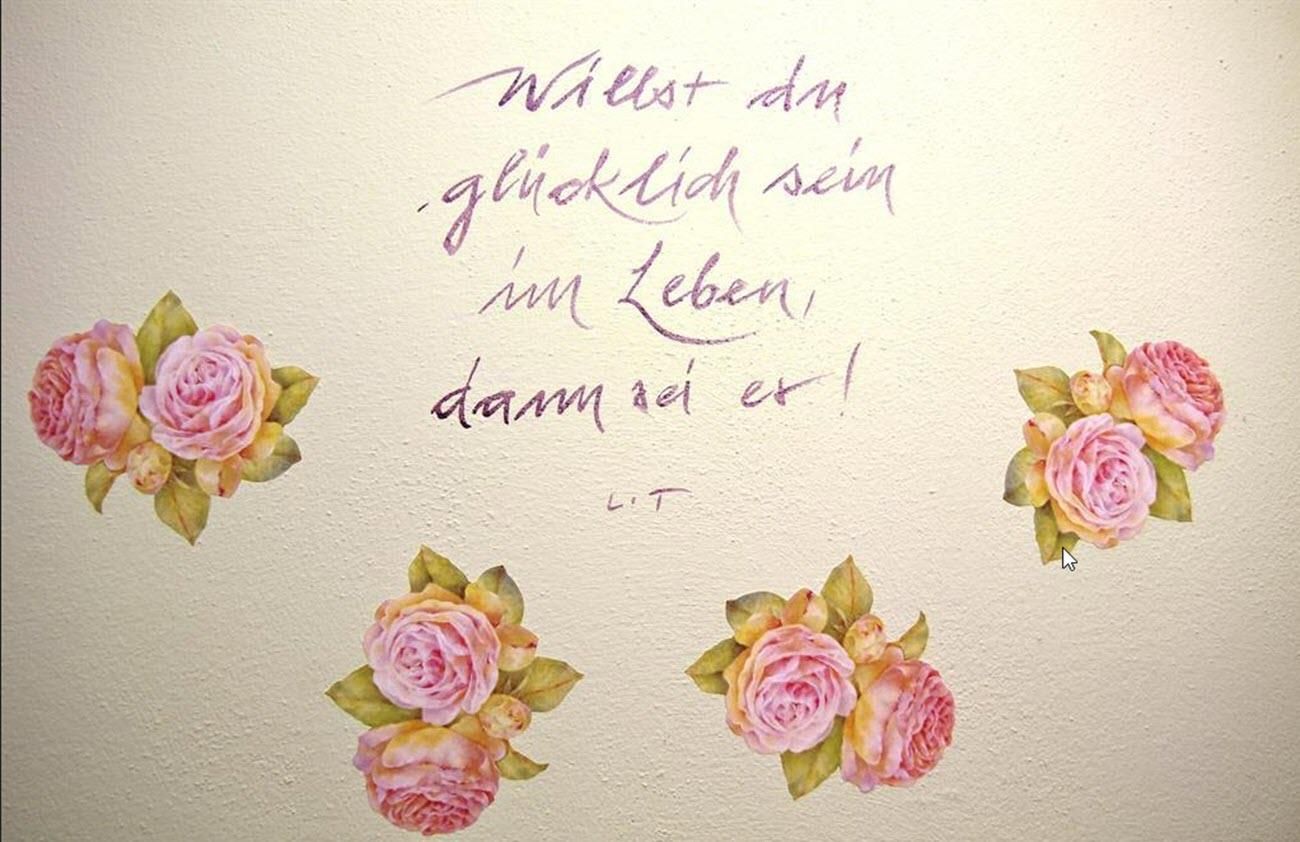 Willst du
glücklich sein
im Leben,
dann sei es!
L.T